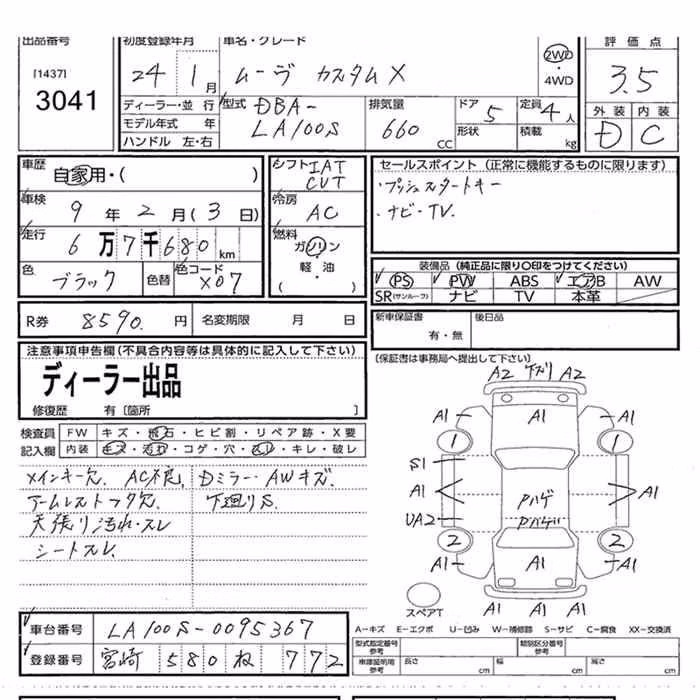 出品番号
[1437]
3041
初度登録年月
24 1月
車名・グレード
ムーヴ カスタムX
2WD
・4WD
評価点
3.5
外装 内装
D C
ディーラー・並行
モデル年式 年
ハンドル 左・右
型式 DBA-
LA100S
排気量
660 CC
ドア 5
形状
定員 4人
積載 kg
車歴
自家用・( )
車検
9年2月(3日)
走行
6万7千680km
色 ブラック
色替
色コード X07
シフト IAT
CVT
冷房
AC
燃料
ガソリン
・
軽・油
( )
セールスポイント (正常に機能するものに限ります)
・プッシュスタートキー
・ナビ・TV.
装備品 (純正品に限り〇印をつけてください)
PS PW ABS エアB AW
SR(サンルーフ) ナビ TV 本革
R券 8590 円
名変期限 月 日
新車保証書
有・無
後日品
(保証書は事務局へ提出して下さい)
注意事項申告欄 (不具合内容等は具体的に記入して下さい)
ディーラー出品
修復歴 有 [箇所 ]
検査員 FW キズ・飛石・ヒビ割・リペア跡・X要
記入欄 内装 キズ・汚れ・コゲ・穴・スレ・キレ・破レ
メインキー欠. AC不良. Dミラー・AWキズ.
アームレストフタ欠. 下廻りS.
天張り汚れ・スレ
シートスレ.
A2 下ズリ A2
A1 A1 A1
1 1
S1
A1 A1
UA2
Pハゲ
Pハゲ
2 2
A1 A1 A1
A1 A1 A1
スペアT
A-キズ E-エクボ U-凹み W-補修跡 S-サビ C-腐食 XX-交換済
車台番号 LA100S-0095367
登録番号 宮崎 580 ね 772
型式指定番号
参考
類別区分番号
参考
車庫証明用
参考
長さ cm
幅 cm
高さ cm